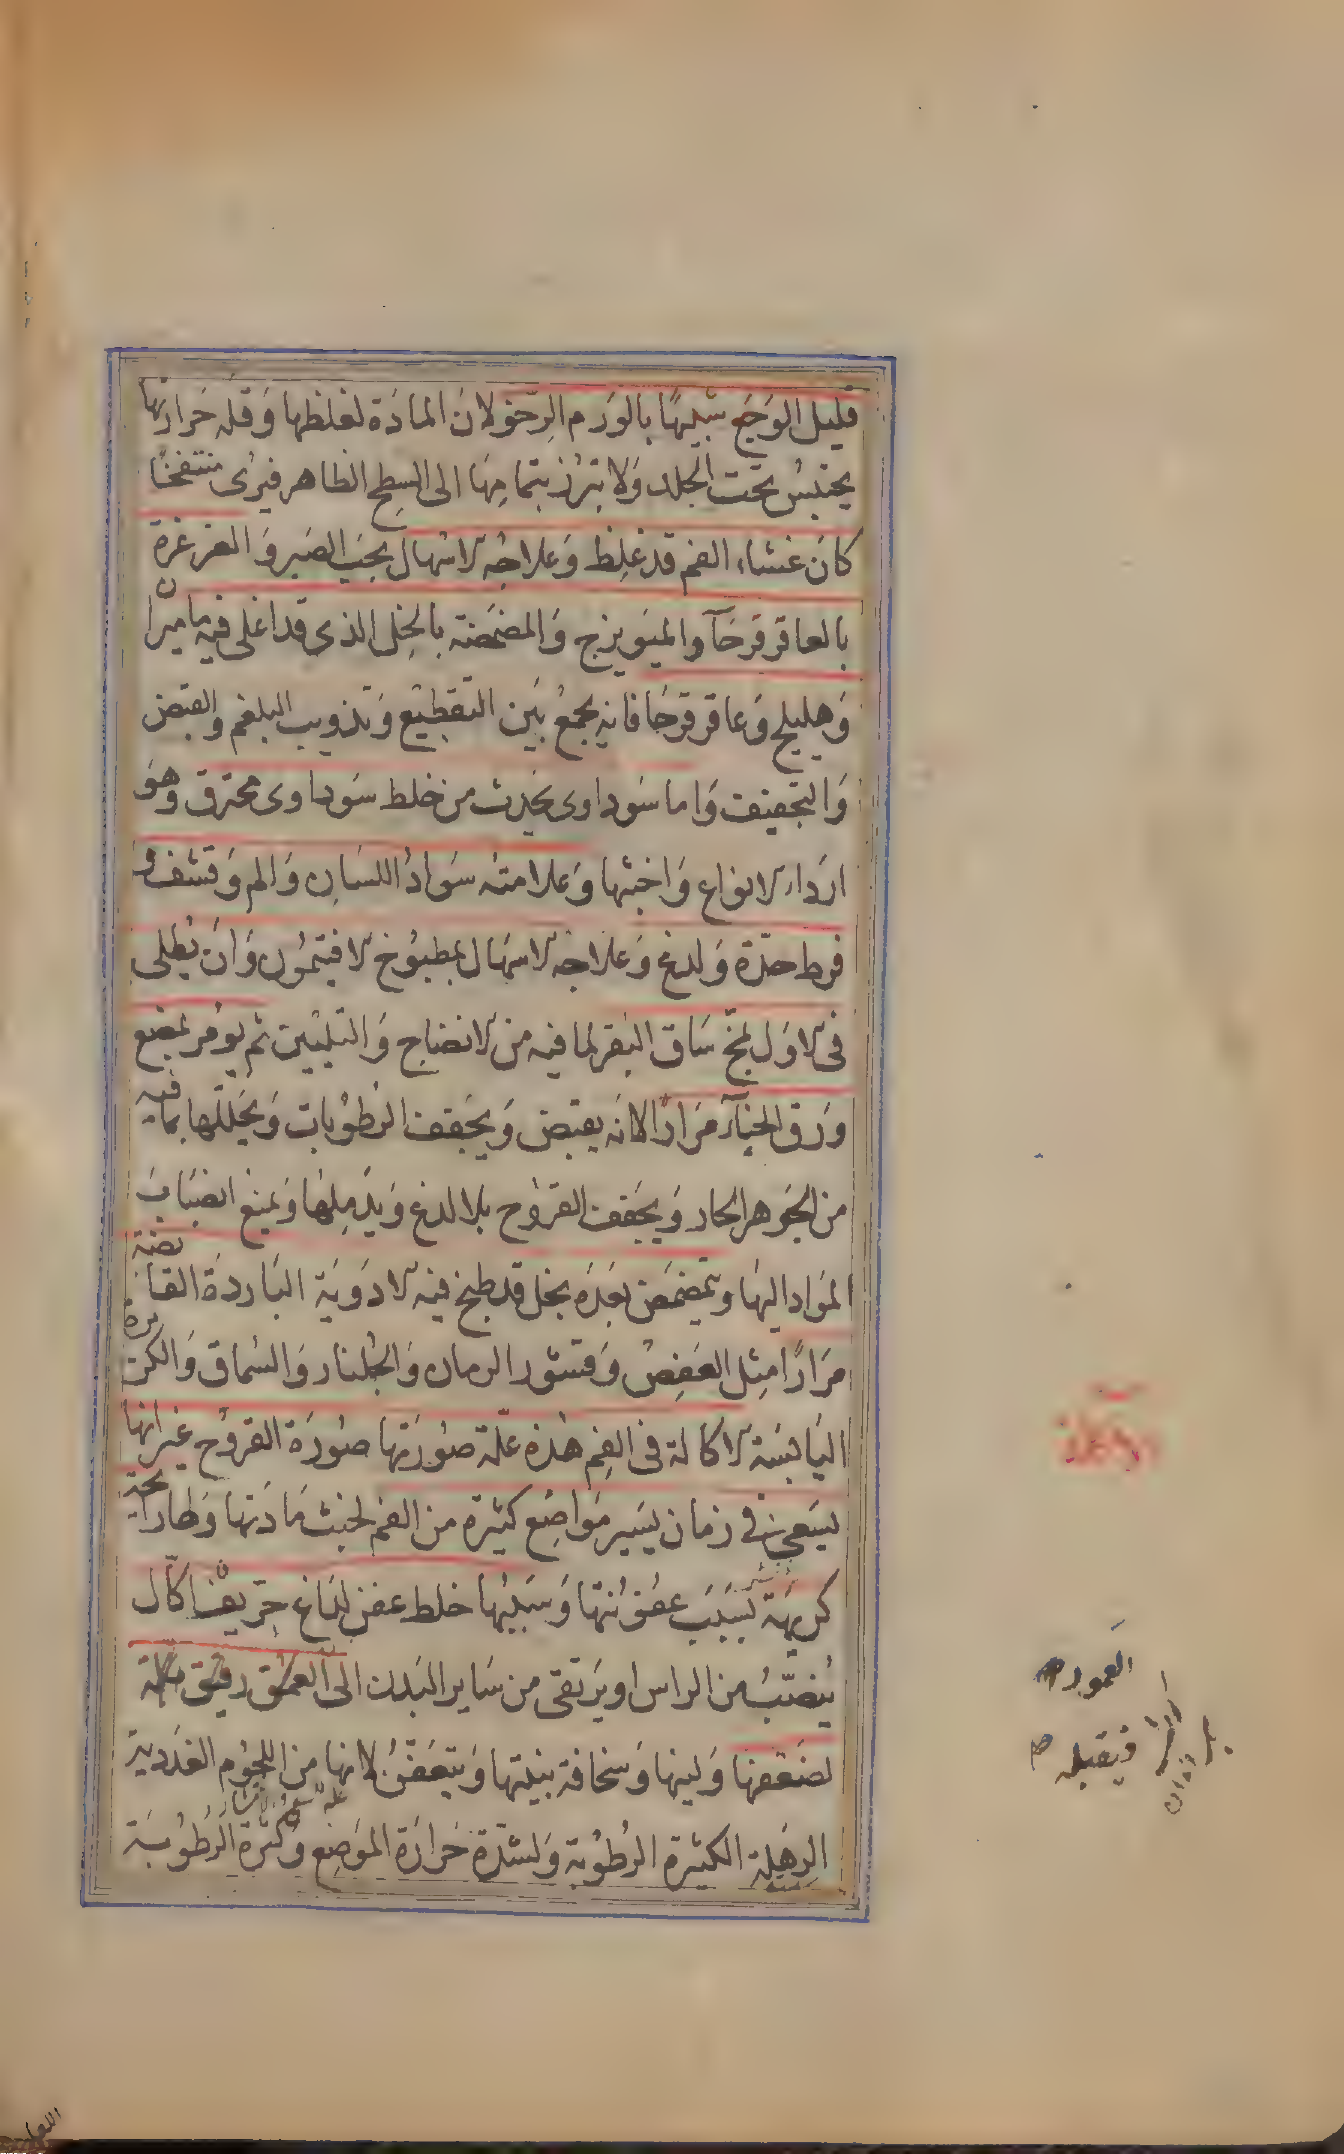 قليل الوَجَع شبيهًا بالوَرَم الرِّخو لانَ المادَة لغلظها وَقلة حَرارتها
يحتبسُ تحت الجلد وَلا تبرُز بتمامِهَا الى السطح الظاهر فيرُى منتفخًا
كانَ غشاء الفم قد غلِظ وَعلاجُه الاسْهال بحَب الصَبر وَالغرغرة
بالعاقرقرحَآ والميَويزج وَالمضمَضَة بالخِل الذى قد اغلى فيه مَاميرَان
وَهليلج وَعاقرقرحَا فانه يجمعُ بَين التقطيع وَتذويب البلغم والقبض
وَالتجفيف وَاما سَوداوى يحَدث من خلط سَوداوى محترق وهوَ
اردَاء الانواع وَاخبثها وَعلامته سَوادُ اللسَان وَالم وَقشف و
فرط حدّة وَلدغ وَعلاجه الاسهَال بمطبوُخ الافتيموُن وَانَ يُطلى
فى الاوَل بمخّ سَاق البَقر لما فيه من الانضاج وَالتليَين ثم يوُمر بمضغ
وَرَق الحِنآء مَرَارًا لانَه يقبض وَيجَفف الرُطوُبات وَيحَللّها بما فيه
من الجَوهر الحار وَيجَفف القروُح بلا لدغ وَيدَمِلهَا وَيمنَع انصبَاب
المَواد اليهَا ويتمضمَض بَعدَه بخل قد طبخ فيه الادَويَة البَاردَة القابضة
مَرَارًا مِثل العَفِص وَقشور الرمان وَالجُلنار وَالسُماق وَالكزبرة
اليَابسَة الاكالة فى الفِم هٰذه علّة صوُرَتها صوُرَة القروُح غير انها
يسَعى فى زمَان يسَير مَواضِع كثيرة من الفم لخبث مَادتها وَلها رَايحة
كريهَة بسَبَب عفوُنتها وَسَببُها خلط عفن لذاغ حِرّيف اكّال
يُنصَبُّ من الراس او يرَتقى من سَاير البَدن الى العمق
لضَعفها وَلينها وَسَخافة بنيتها وَيتعَفّنُ لانها من اللحوُم الغدَدية
الرِهلة الكثيرة الرُطوُبة وَلشدّة حَرارَة المَوضِع وَكثرة الرُطوُبَة
الاكلة
العمور